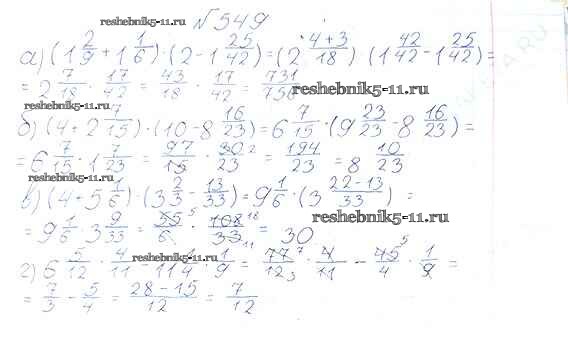 reshebnik5-11.ru
№549
а) (1 2/9 + 1 1/6) · (2 - 1 25/42) = (2 4+3/18) (1 42/42 - 1 25/42) =
= 2 7/18 · 17/42 = 43/18 · 17/42 = 731/756
reshebnik5-11.ru
reshebnik5-11.ru
б) (4 + 2 7/15) · (10 - 8 16/23) = 6 7/15 · (9 23/23 - 8 16/23) =
= 6 7/15 · 1 7/23 = 97/15 · 30²/23 = 194/23 = 8 10/23
reshebnik5-11.ru
в) (4 + 5 1/6) · (3 2/3 - 13/33) = 9 1/6 · (3 22-13/33) =
= 9 1/6 · 3 9/33 = 55⁵/6 · 108¹⁸/33₁₁ = 30
reshebnik5-11.ru
г) 6 5/12 · 4/11 - 11 1/4 · 1/9 = 77⁷/12₃ · 4/11 - 45⁵/4 · 1/9 =
reshebnik5-11.ru
= 7/3 - 5/4 = 28-15/12 = 7/12